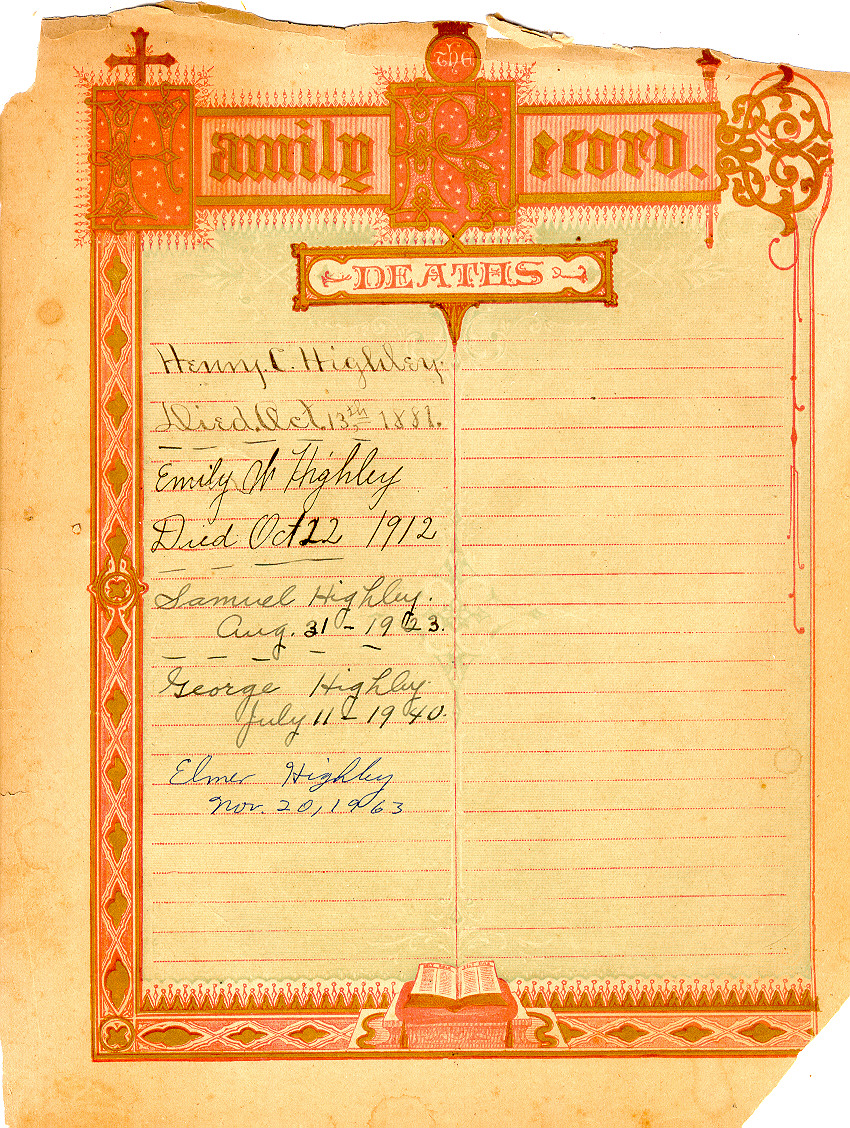 The
Family Record.
DEATHS
Henry. C. Highley.
Died. Oct. 13th 1881.
Emily W Highley
Died Oct 22 1912
Samuel Highley.
Aug. 31 - 1923.
George Highley.
July 11 - 1940.
Elmer Highley
Nov. 20, 1963